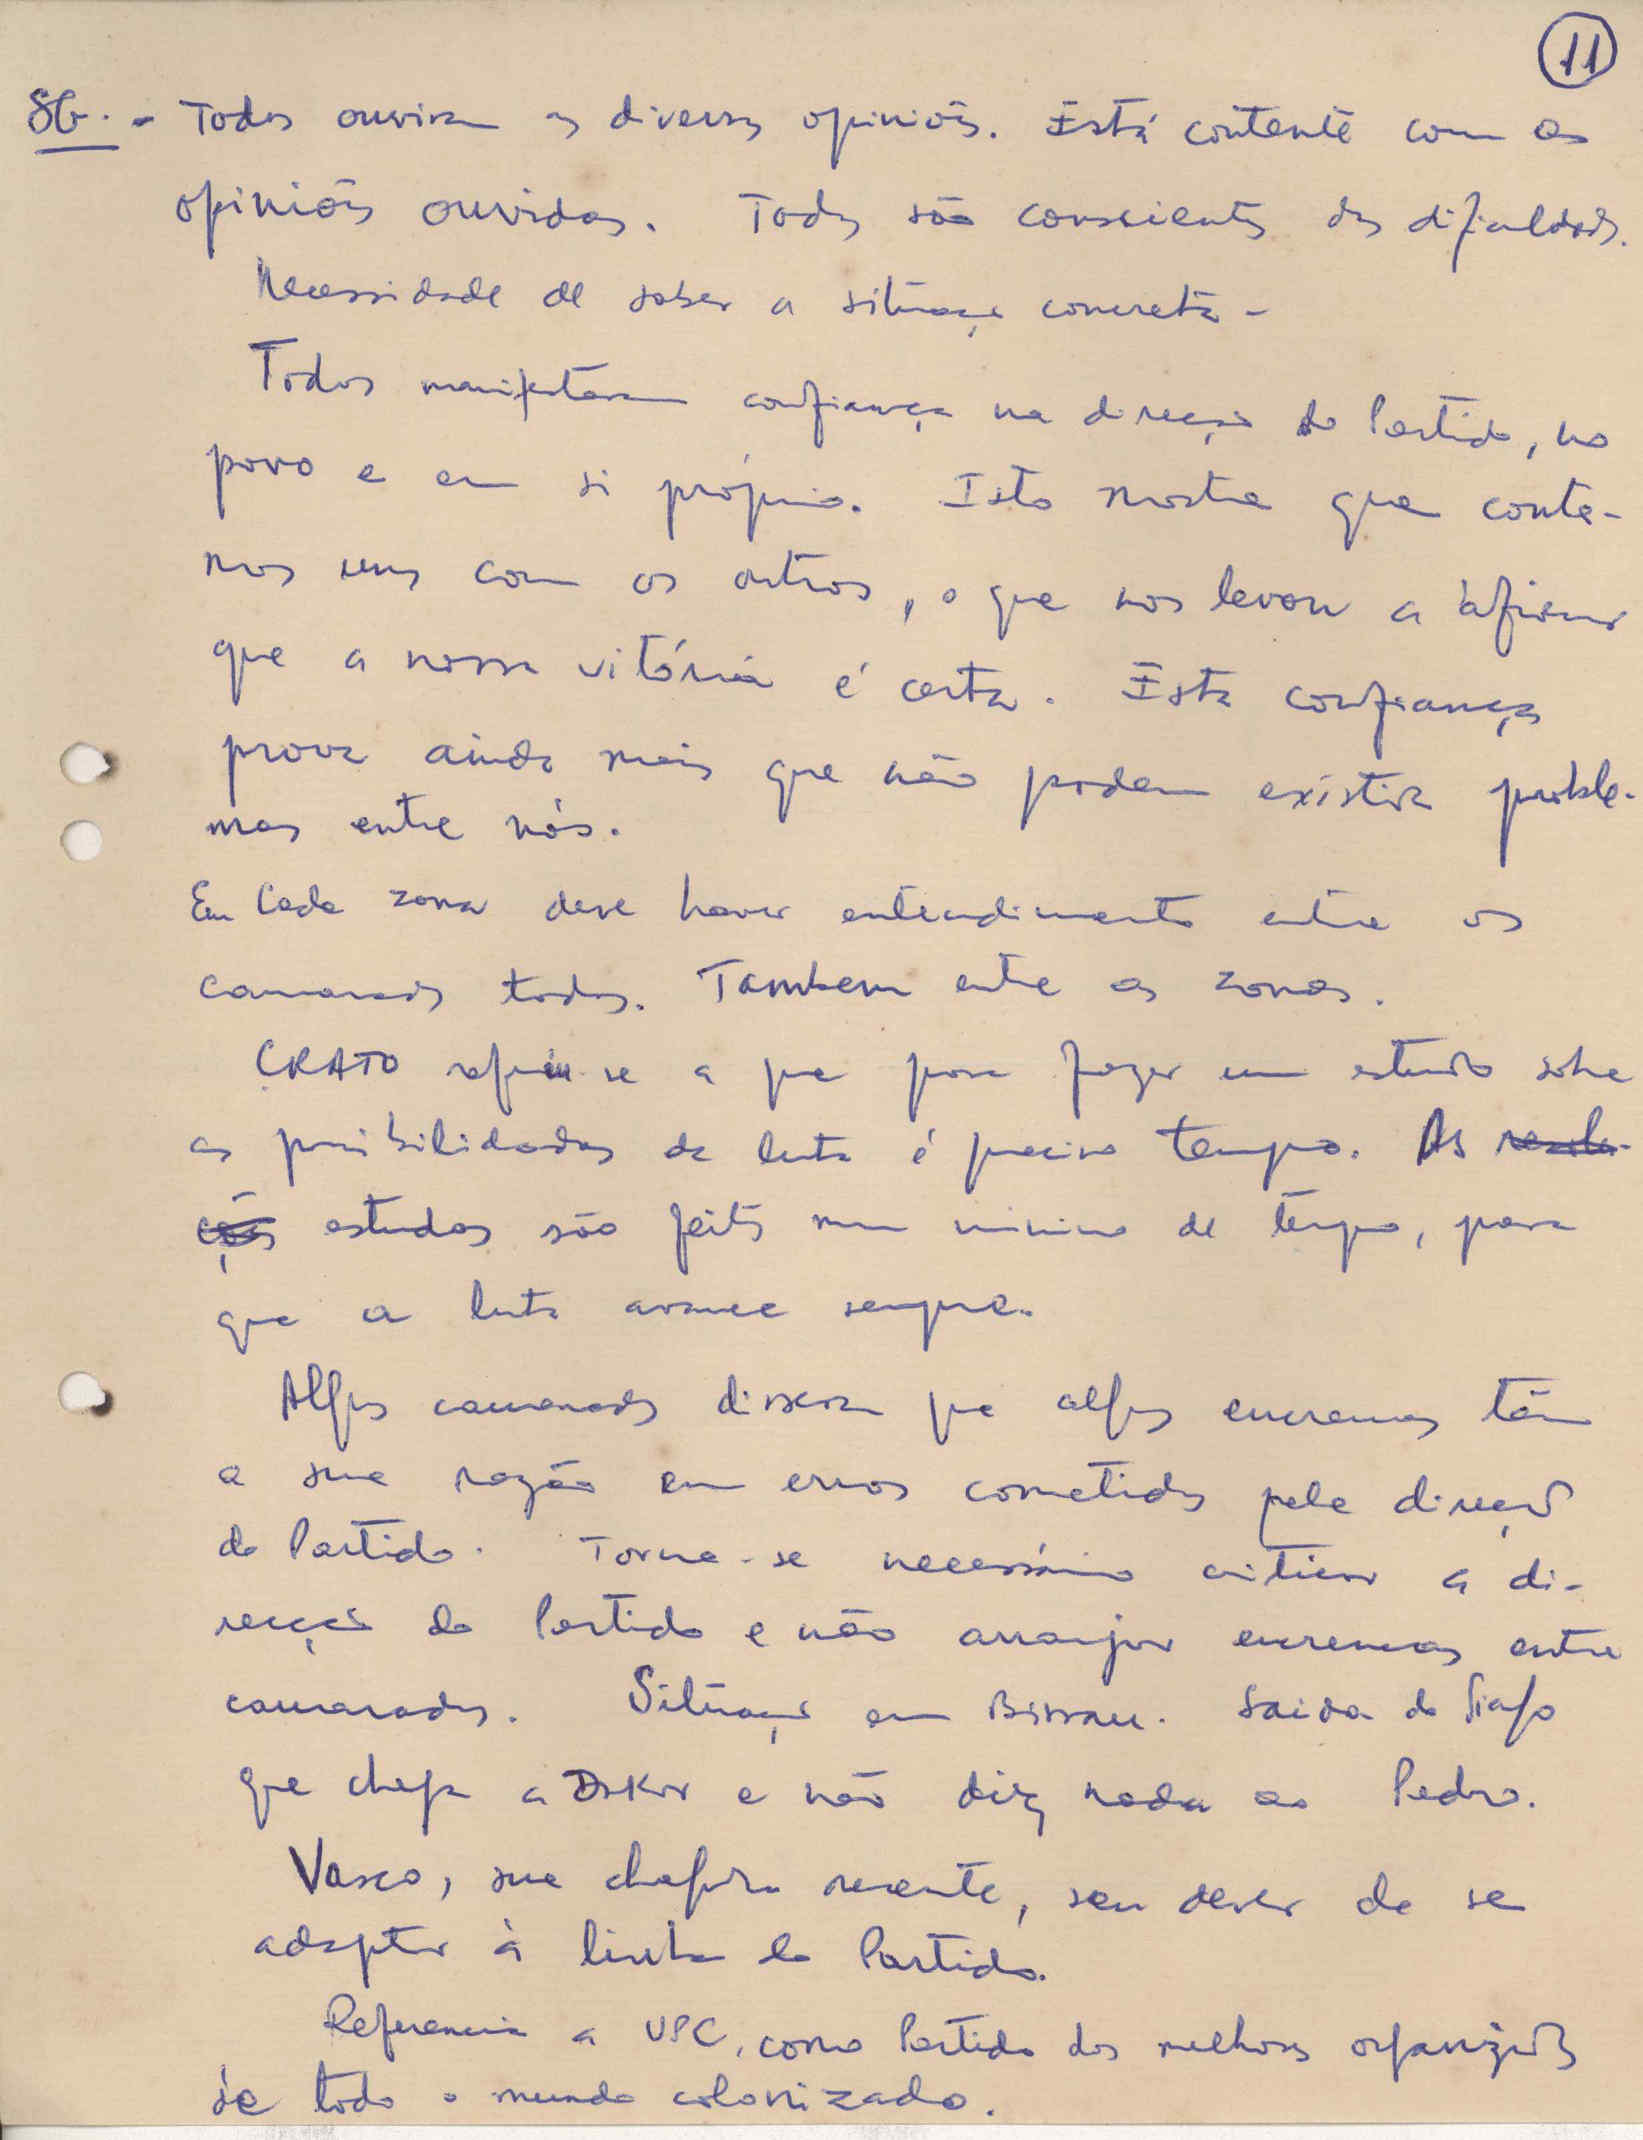 11
SG. - Todos ouviram as diversas opiniões. Está contente com as
opiniões ouvidas. Todos são conscientes das dificuldades.
Necessidade de saber a situação concreta -
Todos manifestaram confiança na direcção do Partido, no
povo e em si próprio. Isto mostra que conta-
mos uns com os outros, o que nos levou a afirmar
que a nossa vitória é certa. Esta confiança
prova ainda mais que não podem existir proble-
mas entre nós.
Em cada zona deve haver entendimento entre os
camaradas todos. Tambem entre as zonas.
CRATO referiu-se a que para fazer um estudo sobre
as possibilidades de luta é preciso tempo. As resolu-
ções estudos são feitos num minimo de tempo, para
que a luta avance sempre.
Alguns camaradas disseram que alguns encrencas têm
a sua razão em erros cometidos pela direcção
do Partido. Torna-se necessário criticar a di-
recção do Partido e não arranjar encrencas entre
camaradas. Situação em Bissau. Saida do
que chega a Dakar e não diz nada ao Pedro.
Vasco, sua chegada recente, seu dever de se
adaptar à linha do Partido.
Referencia a UPC, como Partido dos melhores organizados
de todo o mundo colonizado.